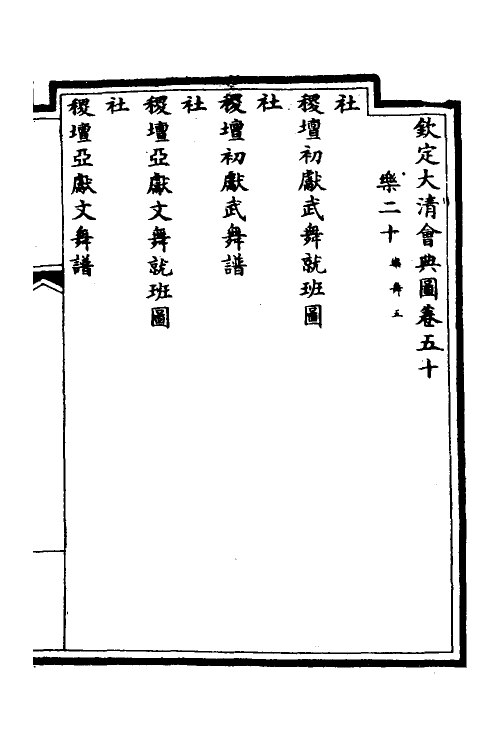 欽定大清會典圖卷五十
樂二十 樂舞五
社
稷壇初獻武舞就班圖
社
稷壇初獻武舞譜
社
稷壇亞獻文舞就班圖
社
稷壇亞獻文舞譜